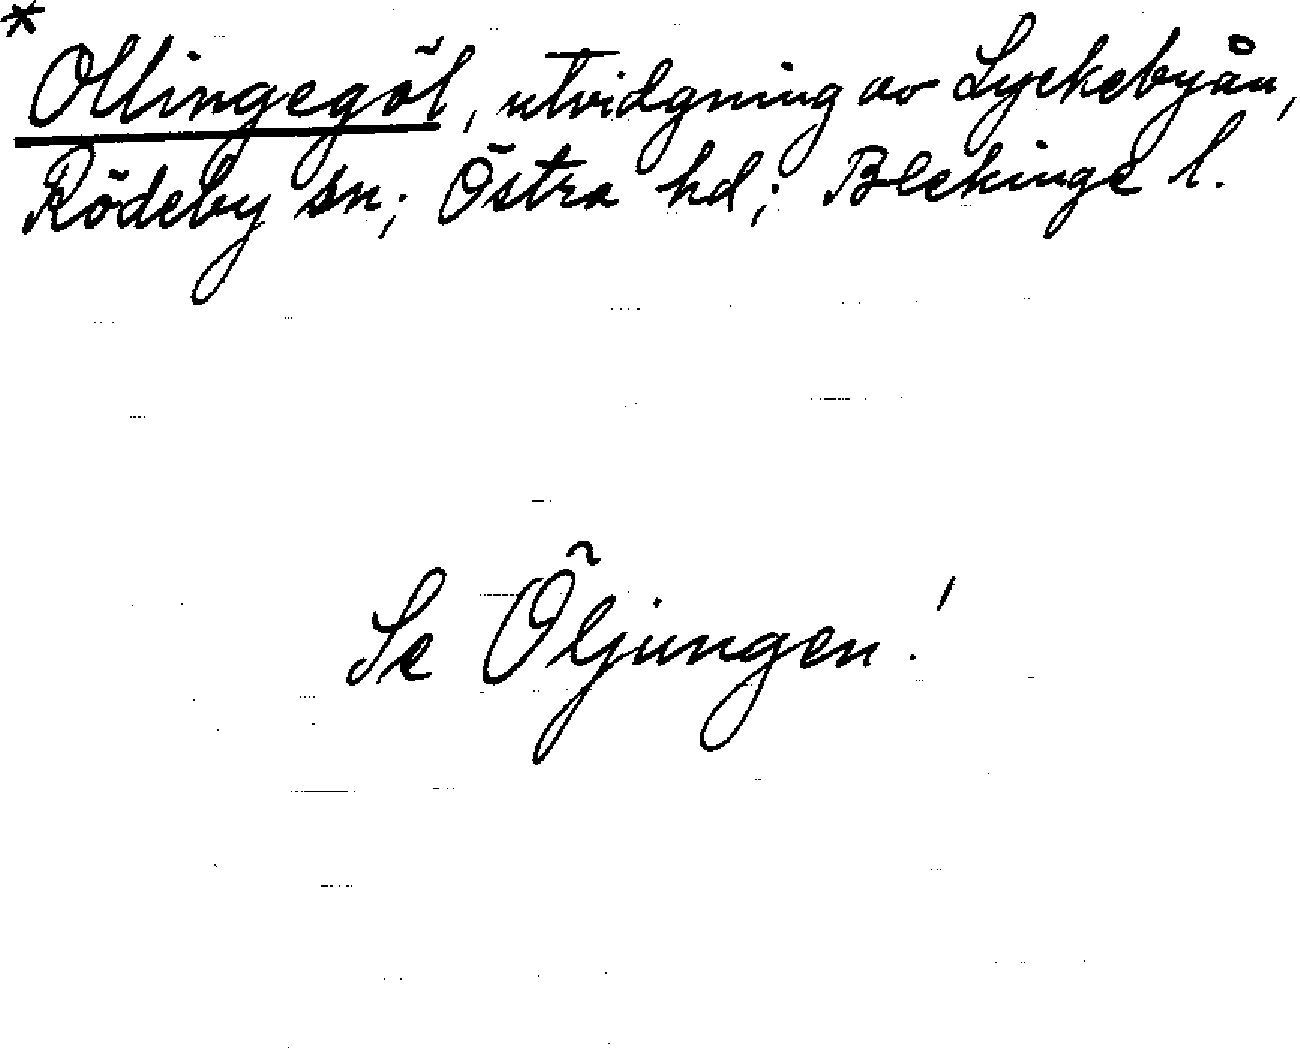 * Ollingegöl, utvidgning av Lyckebyån,
Rödeby sn; Östra hd; Blekinge l.
Se Öljungen!